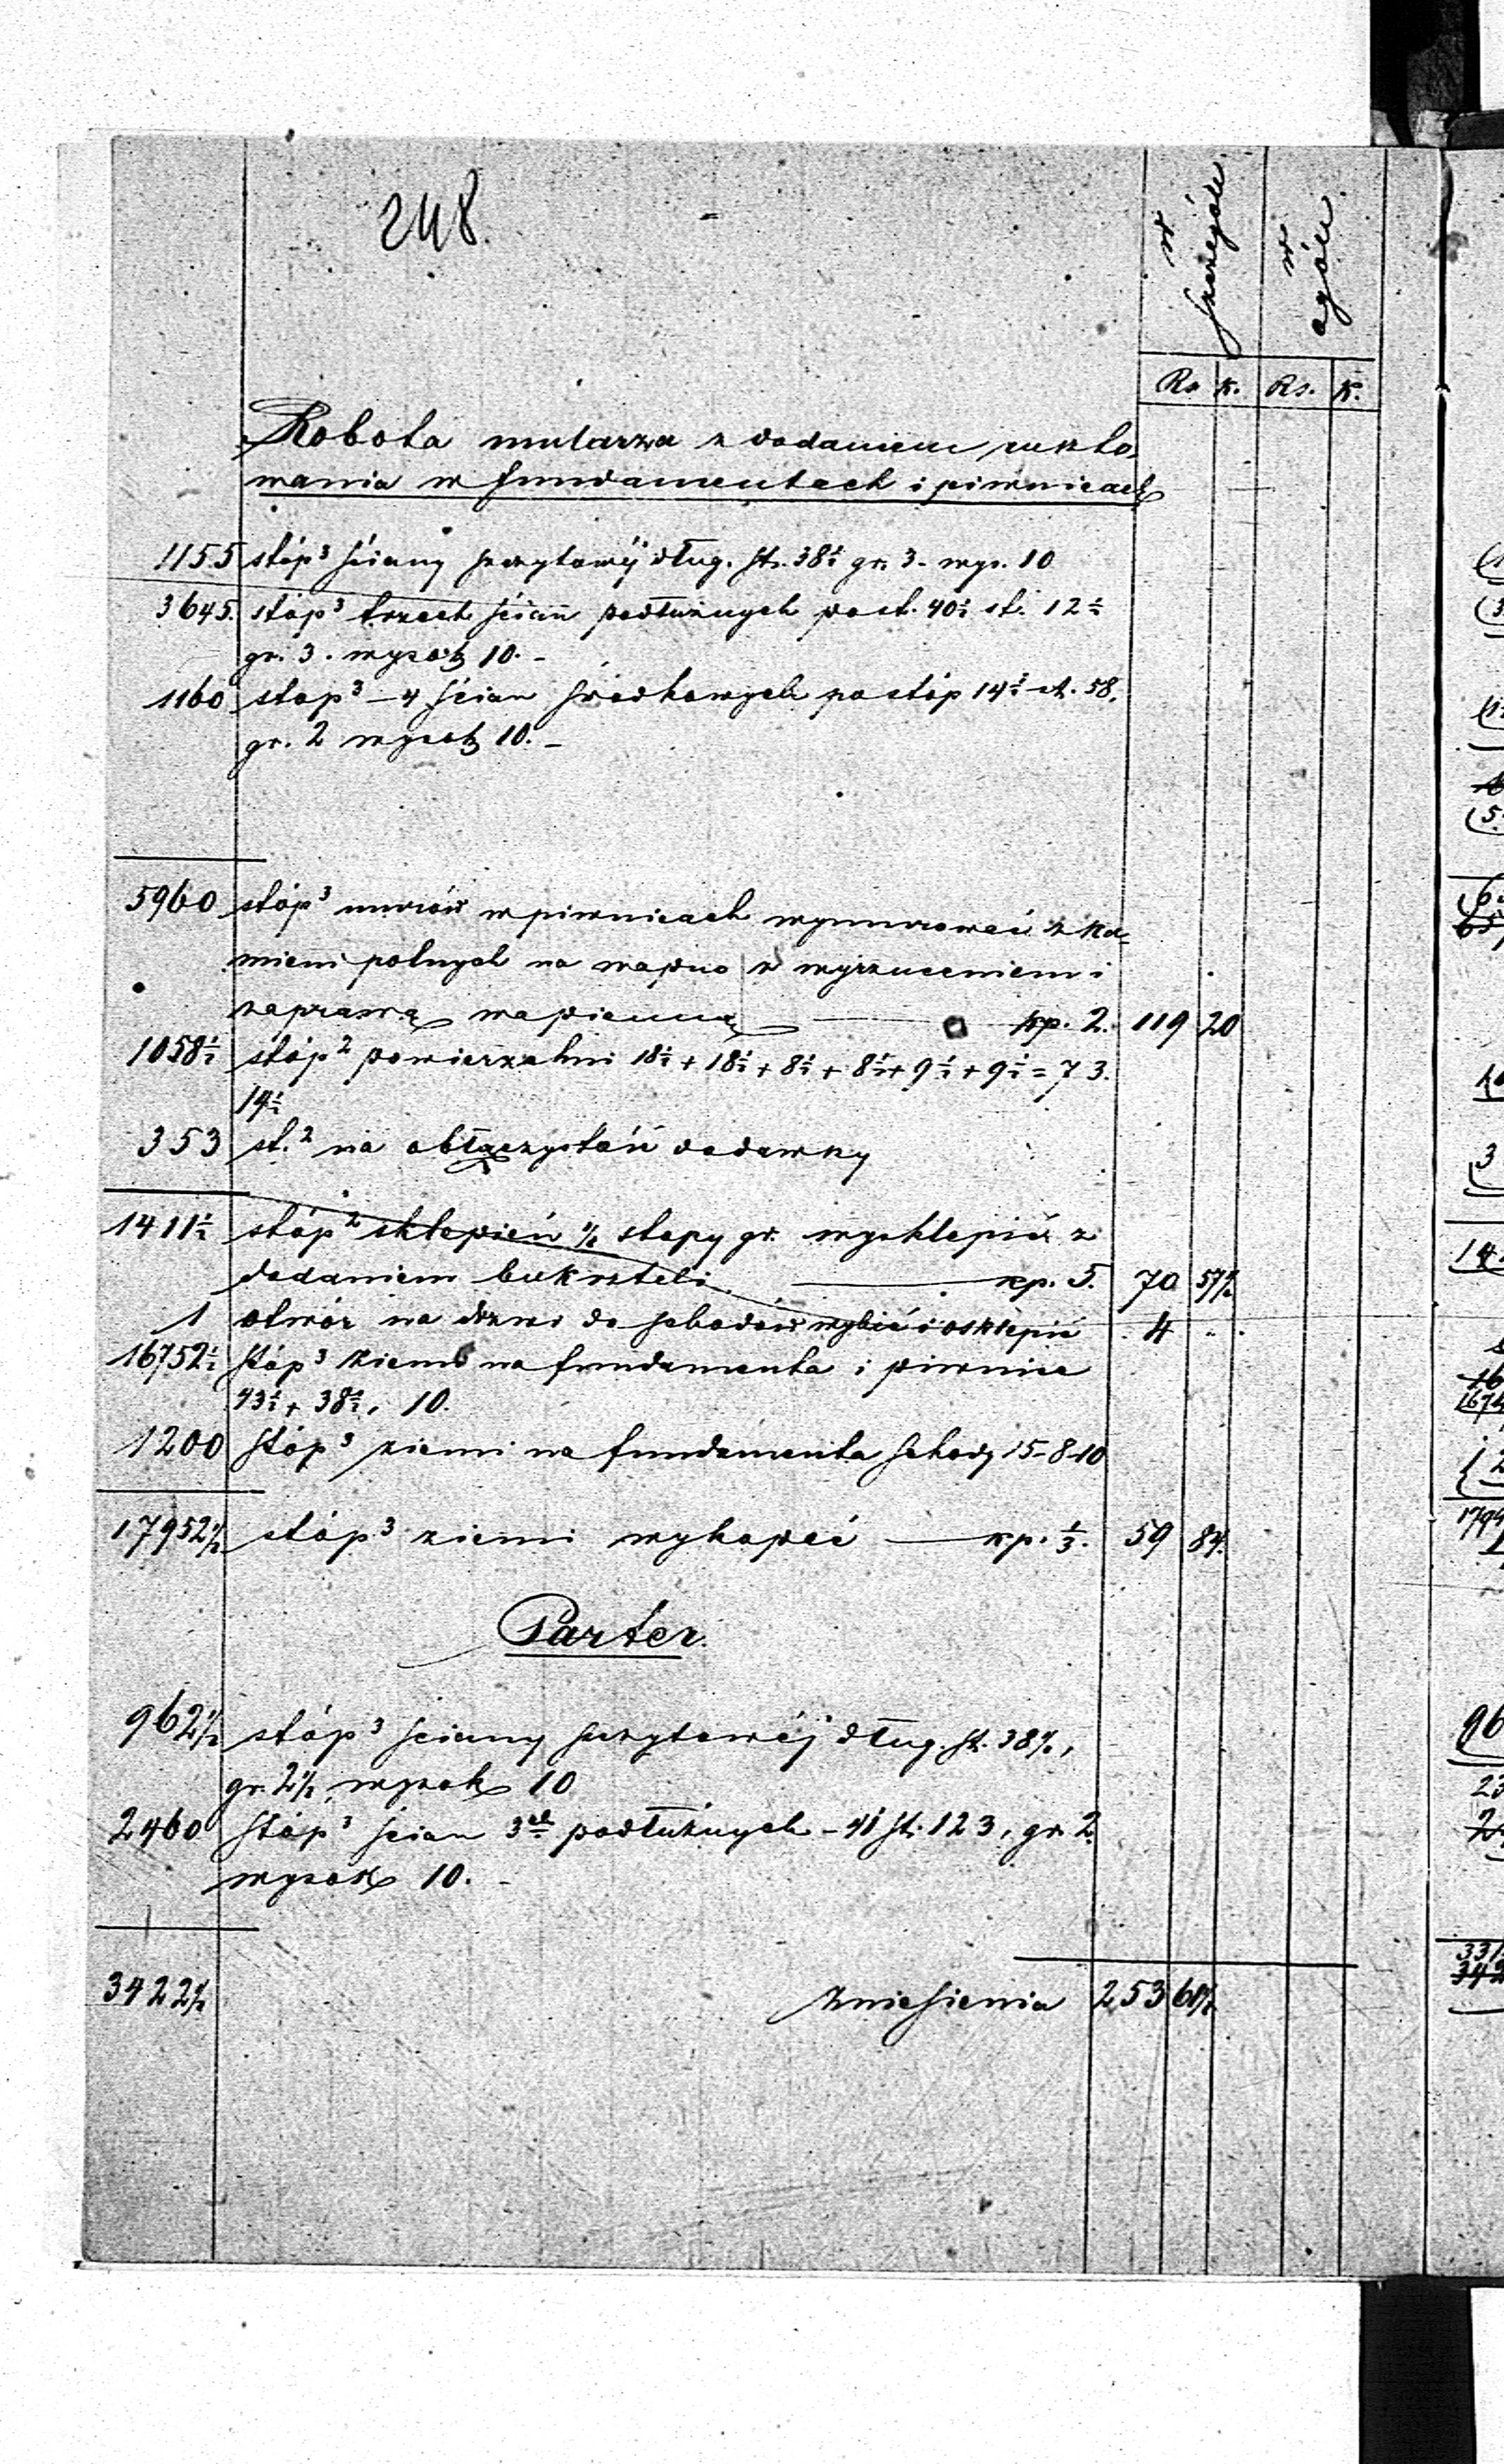 248.
w szczególe
w ogóle
Rs. k. Rs. k.
Robota mularza z dodaniem ruszto-
wania w fundamentach i piwnicach
1155 stóp³ ściany szczytowéj dług. st. 38½ gr. 3. wys. 10
3645. stóp³ trzech ścian podłużnych po st. 40½ st. 121½
gr. 3. wysok 10. -
1160 stóp³ - 4 ścian środkowych po stóp 14½ st. 58.
gr. 2 wysok 10. -
5960 stóp³ murów w piwnicach wymurować z ka-
mieni polnych na wapno z wyrzuceniem i
zaprawą wapienną kp. 2. 119 20
1058½ stóp² powierzchni 18½ + 18½ + 8½ + 8½ + 9½ + 9½ = 73.
14½
353 st.² na obłączystość dodawszy
1411½ stóp² sklepień ½ stopy gr. wysklepić z
dodaniem bukszteli kp. 5. 70 57½
1 otwór na drzwi do schodów wybić i osklepić 4 "
16752½ stóp³ ziemi na fundamenta i piwnice
43½ + 38½, 10.
1200 stóp³ ziemi na fundamenta schody 15-8-10
17952½ stóp³ ziemi wykopać kp. ⅓. 59 84.
Parter.
962½ stóp³ ściany szczytowéj dług. st. 38½,
gr. 2½, wysok 10
2460 stóp³ ścian 3ch podłużnych - 41 st. 123, gr. 2.
wysok 10. -
3422½ Zniesienia 253 61½